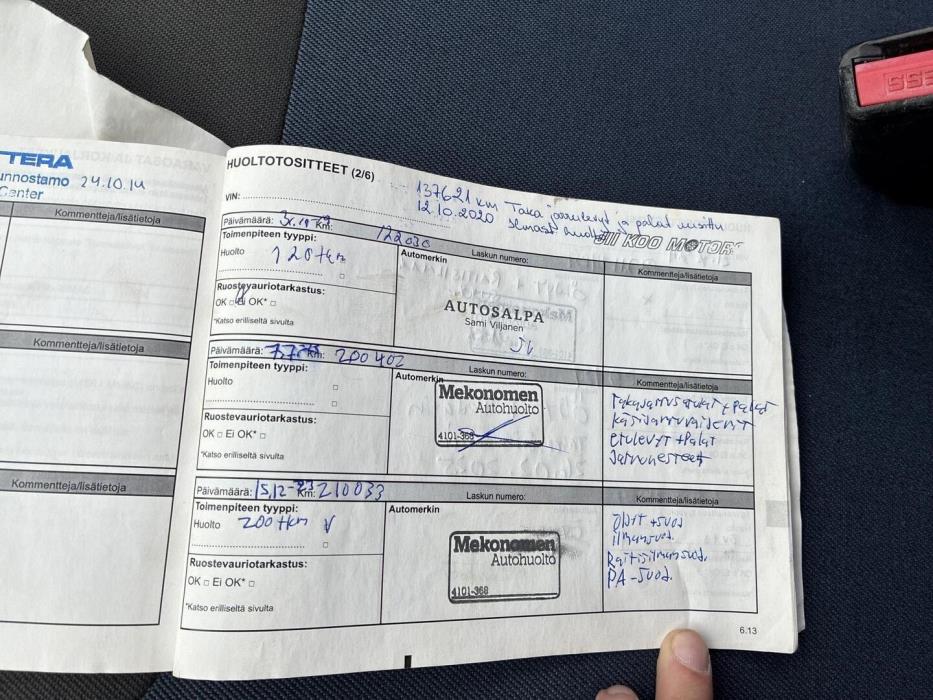 TTERA
unnostamo 24.10.14
Center
Kommentteja/lisätietoja
Kommentteja/lisätietoja
Kommentteja/lisätietoja
HUOLTOTOSITTEET (2/6)
137621 km Taka jarrulevyt ja palat uusittu
VIN:
12.10.2020
JII KOO MOTORS
Päivämäärä: Km: 122030
Toimenpiteen tyyppi:
Laskun numero:
Huolto 120 tkm
Automerkin
Kommentteja/lisätietoja
Ruostevauriotarkastus:
OK Ei OK*
*Katso erilliseltä sivulta
AUTOSALPA
Sami Viljanen
Päivämäärä: Km: 200402
Toimenpiteen tyyppi:
Laskun numero:
Huolto
Automerkin
Kommentteja/lisätietoja
Mekonomen
Autohuolto
4101-368
Takajarrusatulat + Palat
Käsijarruvaijerit
etulevyt + Palat
Jarrunesteet
Ruostevauriotarkastus:
OK Ei OK*
*Katso erilliseltä sivulta
Päivämäärä: 15.12-23 Km: 210033
Toimenpiteen tyyppi:
Laskun numero:
Huolto 200 tkm V
Automerkin
Kommentteja/lisätietoja
Mekonomen
Autohuolto
4101-368
Öljyt + suod
ilmansuod.
Raitisilmansuod.
PA-suod.
Ruostevauriotarkastus:
OK Ei OK*
*Katso erilliseltä sivulta
6.13
ESS